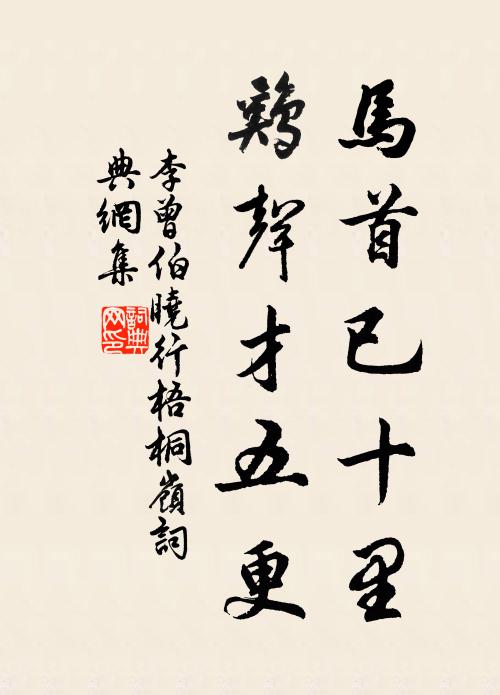 馬首已十里
鷄聲才五更
李曾伯曉行梧桐嶺詞
典網集
詞典
网印